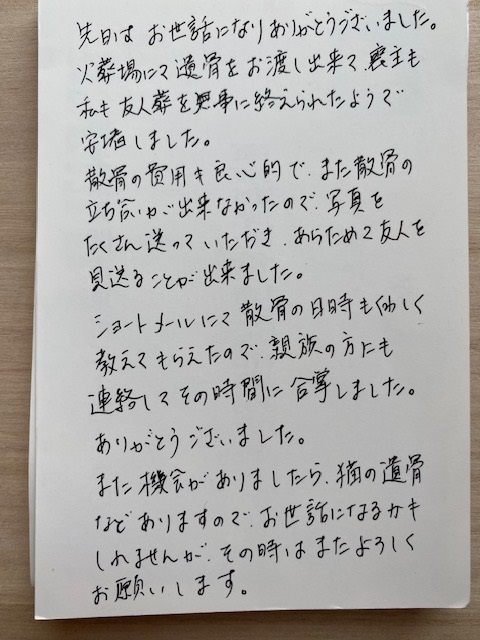 先日は お世話になりありがとうございました。
火葬場にて遺骨をお渡し出来て、喪主も
私も友人葬を無事に終えられたようで
安堵しました。
散骨の費用も良心的で、また散骨の
立ち合いが出来なかったので、写真を
たくさん送っていただき、あらためて友人を
見送ることが出来ました。
ショートメールにて散骨の日時もくわしく
教えてもらえたので、親族の方にも
連絡してその時間に合掌しました。
ありがとうございました。
また機会がありましたら、猫の遺骨
などありますので、お世話になるかも
しれませんが、その時はまたよろしく
お願いします。